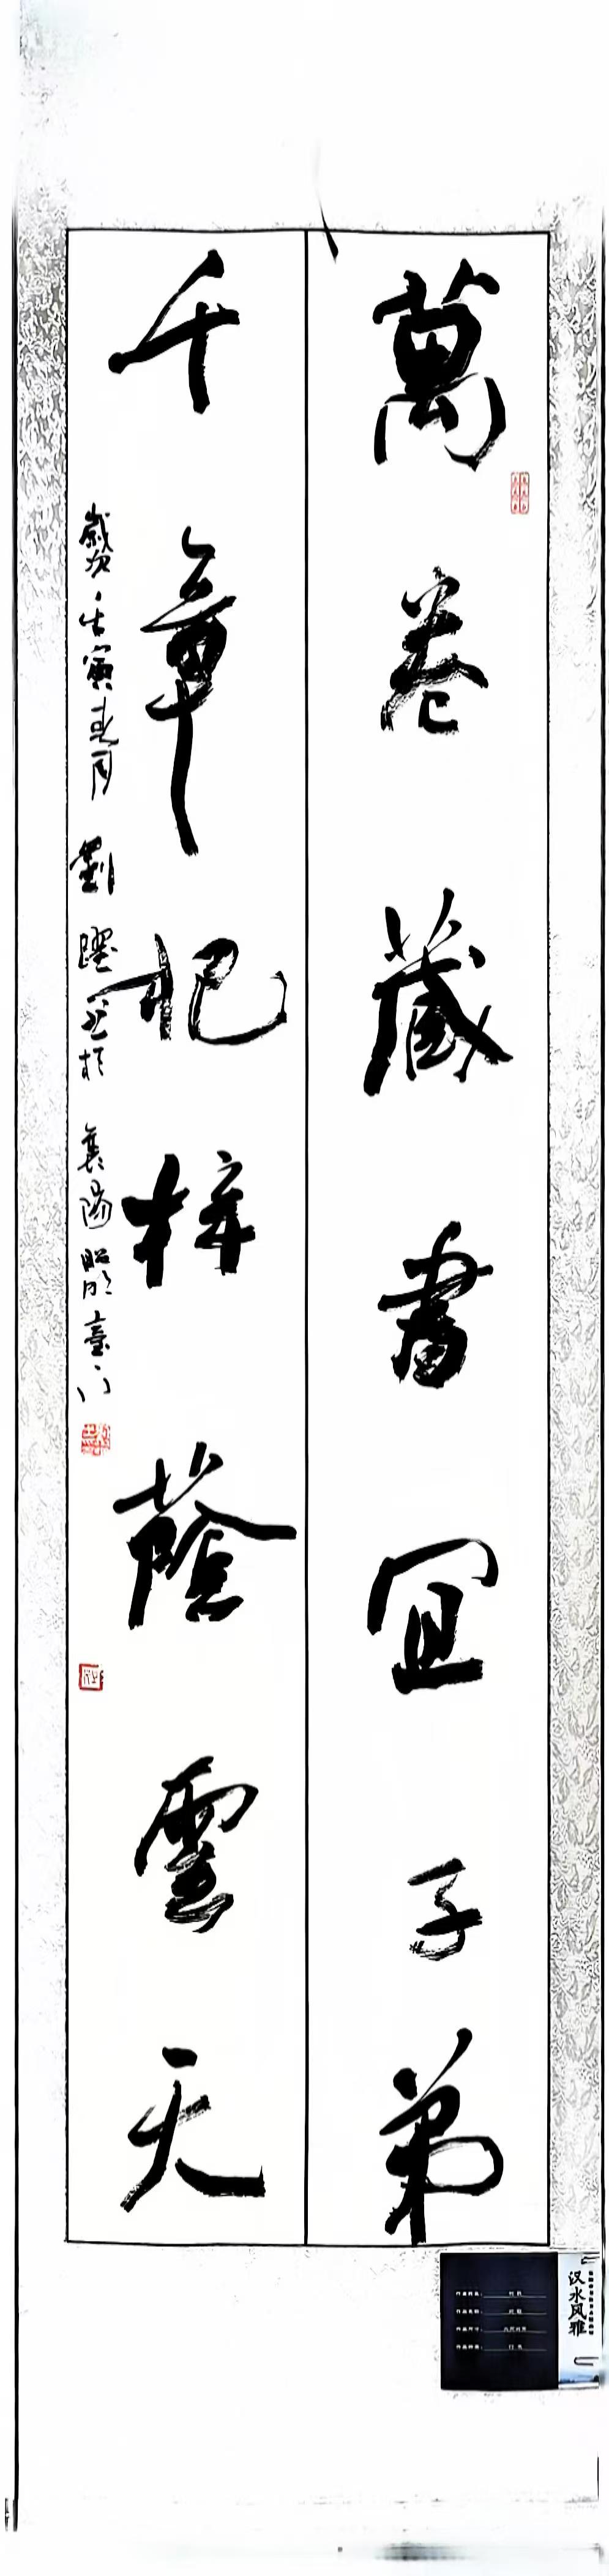 萬卷藏書宜子弟
千章杞梓蔭雲天
歲次壬寅春月劉躍並於襄陽昭明臺下
汉水风雅